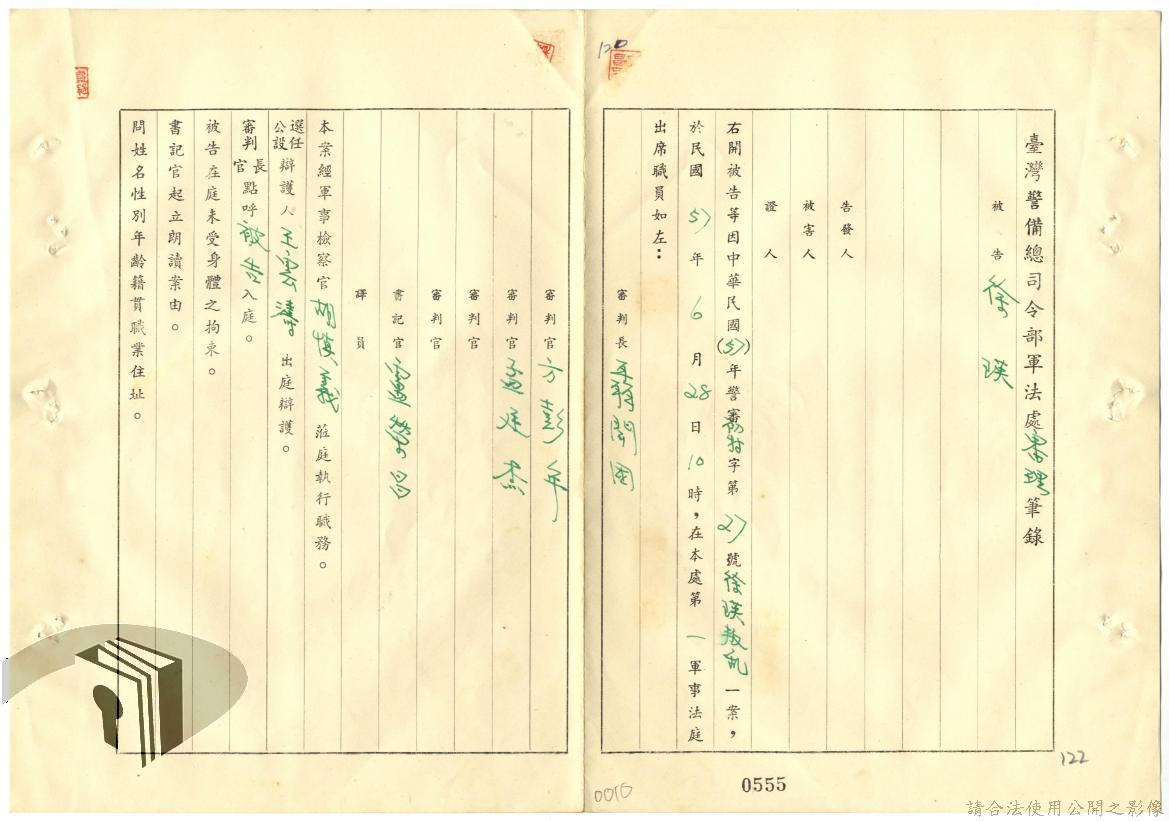 臺灣警備總司令部軍法處審理筆錄
被告 徐瑛
告發人
被害人
證人
右開被告等因中華民國(57)年警審字第27號徐瑛叛亂一案,
於民國57年6月28日10時,在本處第一軍事法庭
出席職員如左:
審判長
審判官 方彭年
審判官 孟廷杰
審判官
審判官
書記官 昌
譯員
本案經軍事檢察官 胡模義 蒞庭執行職務。
選任公設辯護人 王雲濤 出庭辯護。
審判長官點呼被告入庭。
被告在庭未受身體之拘束。
書記官起立朗讀案由。
問姓名性別年齡籍貫職業住址。
120
122
0010
0555
請合法使用公開之影像